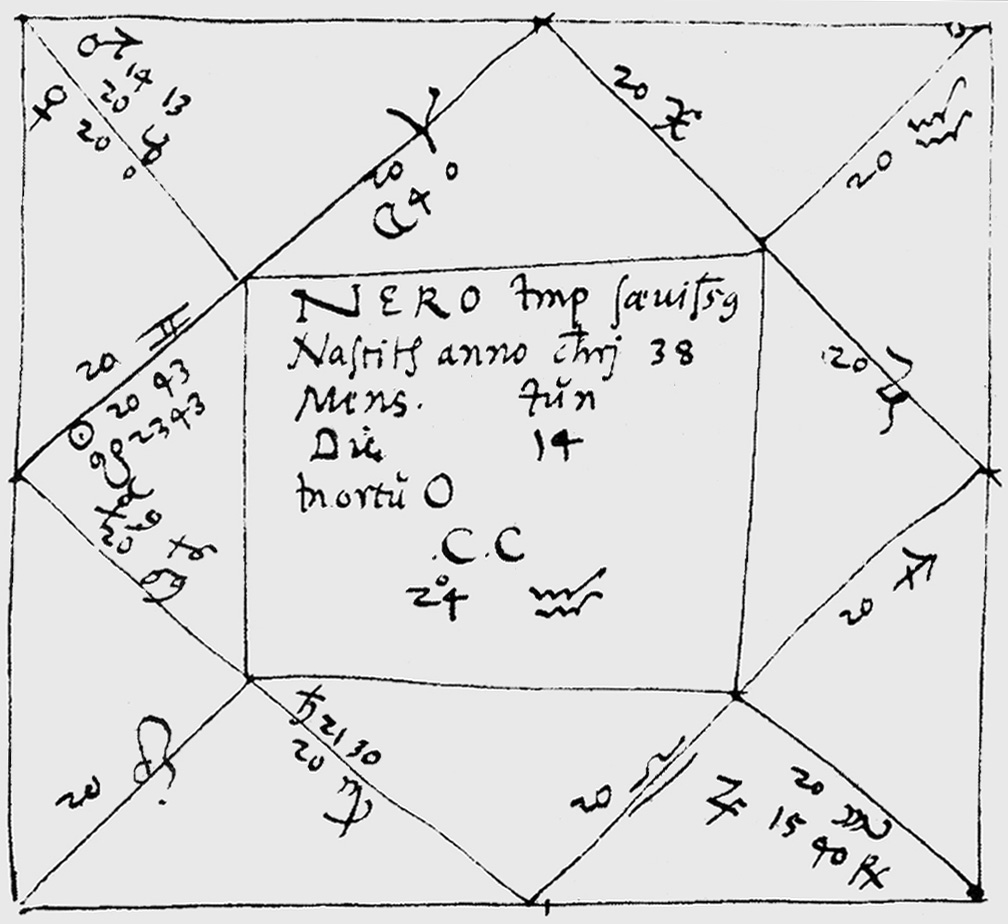 ♂ 14 13
20 ♉
♀ 20 0
♈
20 0
☽ 4
20 ♓
20 ♒
20 ♑
20 ♐
20 ♏
♃ 15 40 ℞
20 ♎
♄ 21 30
20 ♍
20 ♌
20 ♋
20 ♊
☉ 20 43
23 43
NERO Imp
Nascit anno chrj 38
Mens. Iŭn
Die 14
mortŭ O
.C.C
24° ♒